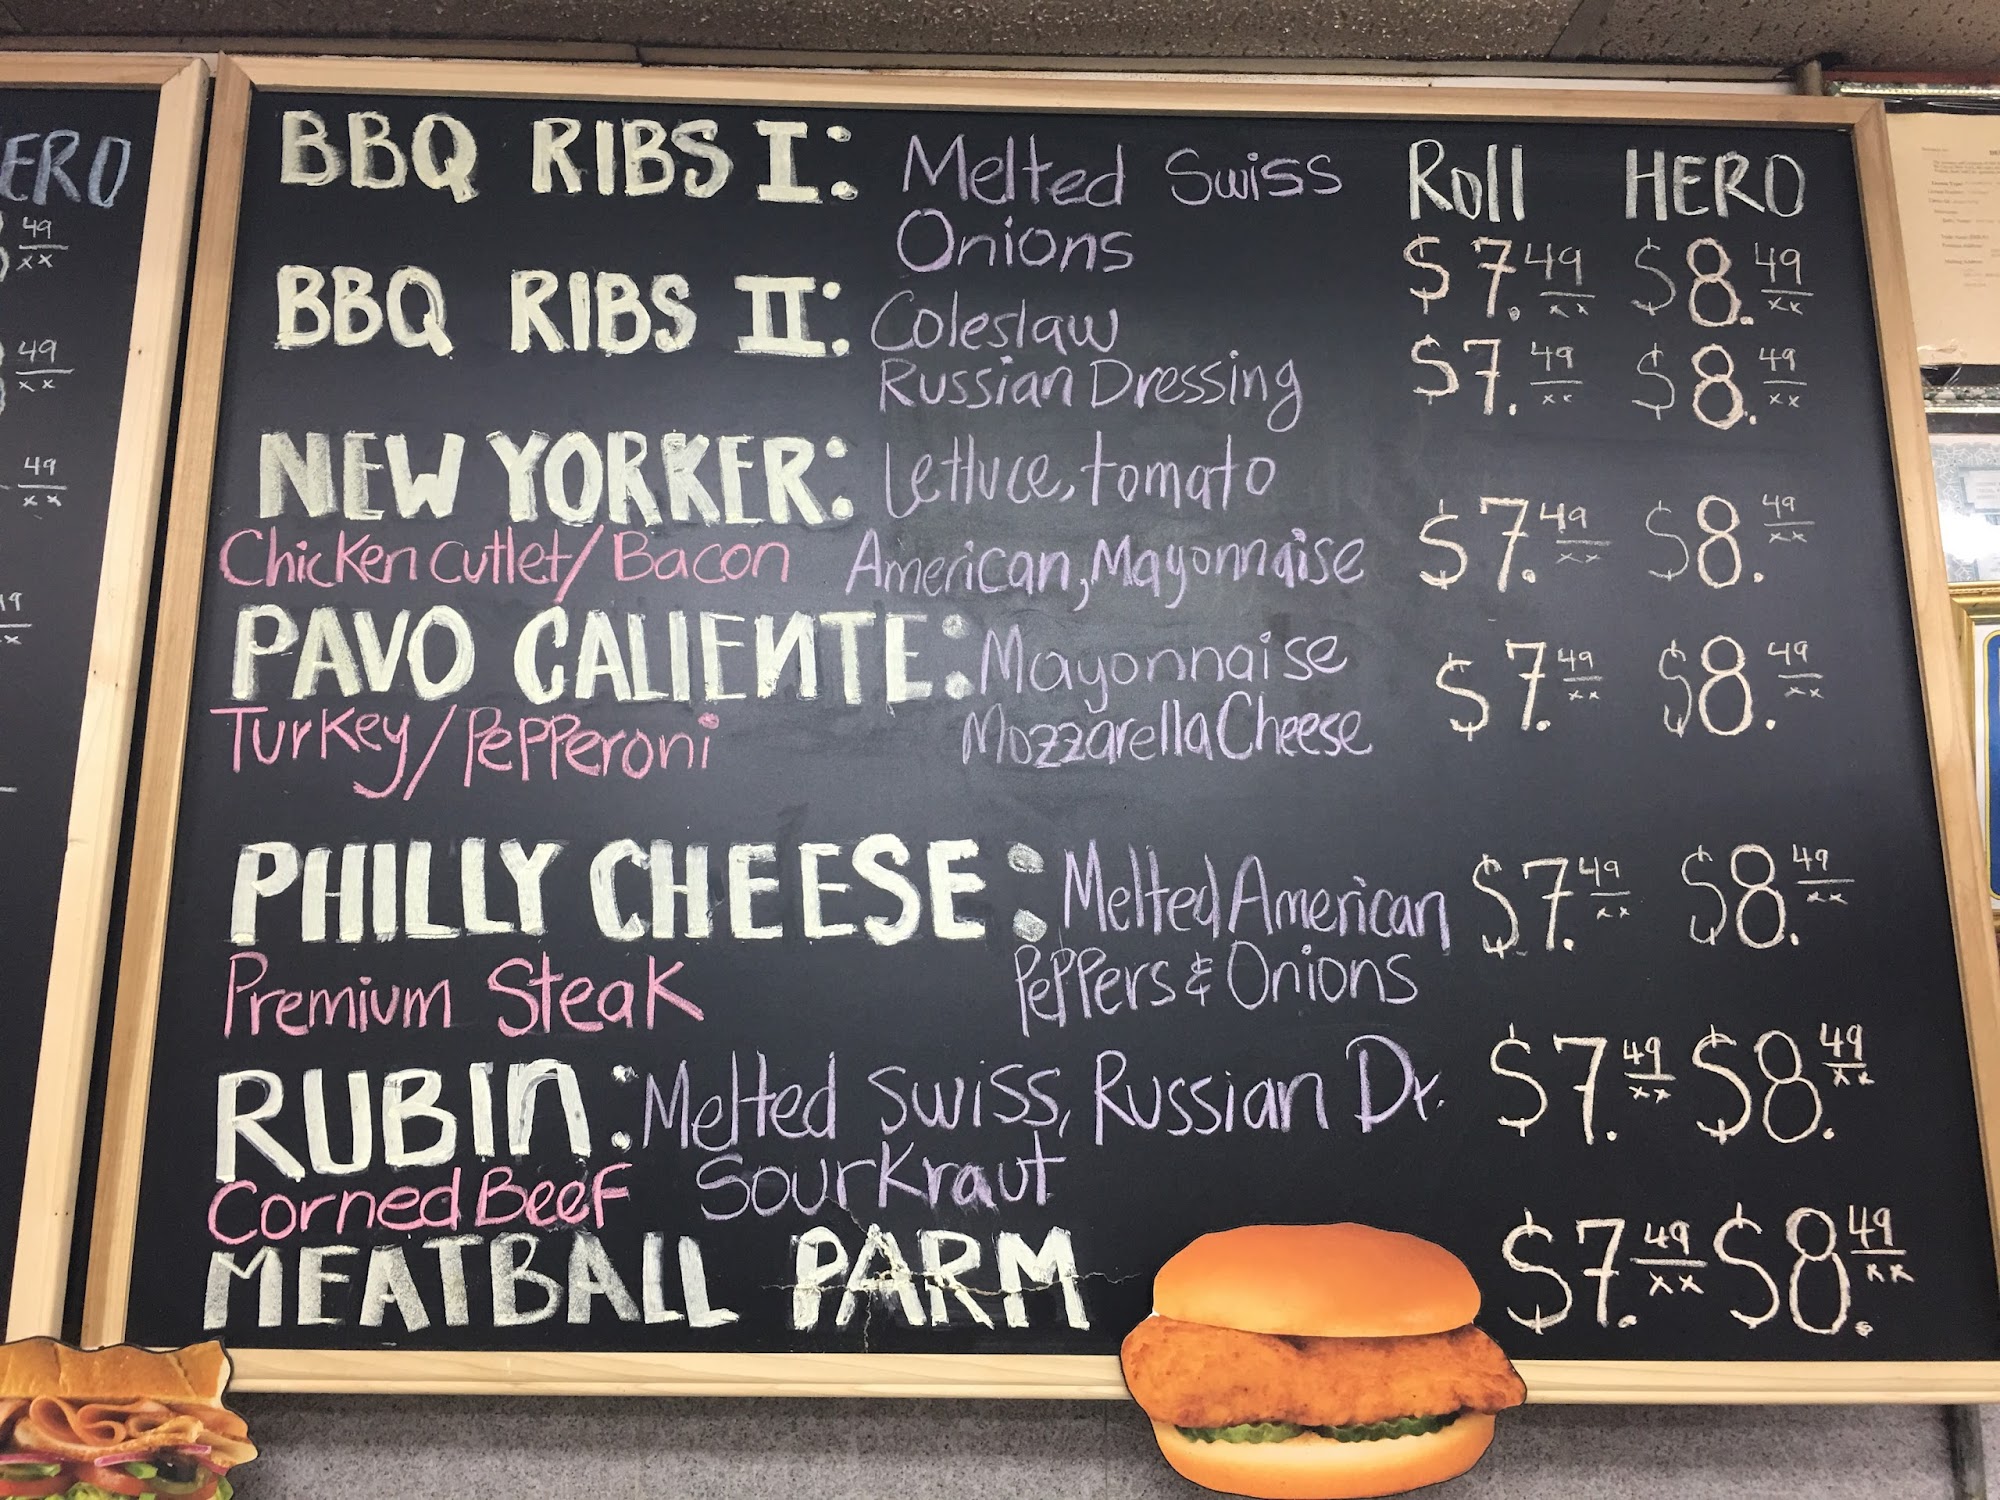 BBQ RIBS I: Melted Swiss Roll HERO
Onions $7.49 xx $8.49 xx
BBQ RIBS II: Coleslaw $7.49 xx $8.49 xx
Russian Dressing
NEW YORKER: Lettuce, tomato
Chicken Cutlet/Bacon American, Mayonnaise $7.49 xx $8.49 xx
PAVO CALIENTE: Mayonnaise $7.49 xx $8.49 xx
Turkey/Pepperoni Mozzarella Cheese
PHILLY CHEESE: Melted American $7.49 xx $8.49 xx
Premium Steak Peppers & Onions
RUBIN: Melted Swiss, Russian Dr. $7.49 xx $8.49 xx
Corned Beef Sourkraut
MEATBALL PARM $7.49 xx $8.49 xx
ERO
49
xx
49
xx
49
xx